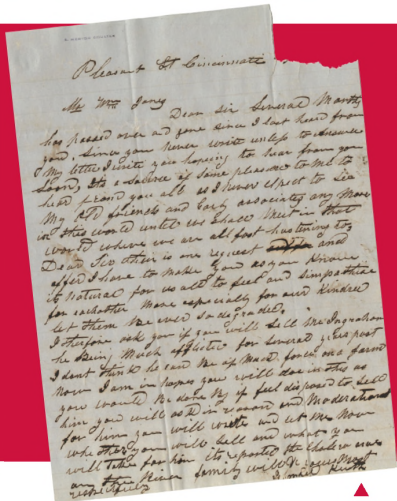 Pleasant St Cincinnati
Mr Wm Janey
Dear Sir Several Months
has passed over and gone since I last heard from
you, Since you never write unless to answer
My letter I write you hoping to hear from you
Soon, Its a Source of Some pleasure to Me to
hear from you all as I never Expect to See
My Old friends and Early associates any More
in this world until we Shall Meet in that
world where we are all fast hastening to,
Dear Sir there is one request and
offer I have to Make you as you know
it Natural for us all to feel and Simpathise
for each other More especially for our Kindred
let them be ever So degraded,
I therefore ask you if you will Sell Me
he being Much afflicted for Several years past
I dont think he can be of Much on a farm
Now I am in hopes you will doe in this as
you would be done by if feel disposed to Sell
him you will ask in reason and Moderation
for him you will write and let Me know
whether you will Sell and what you
will Take for him its reported the Cholera was
on the River family will
respectfully